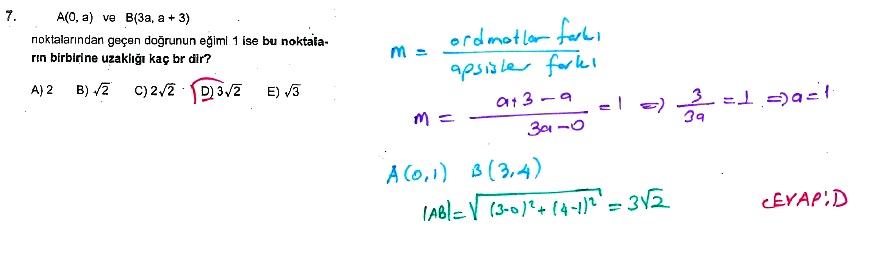 7. A(0, a) ve B(3a, a + 3)
noktalarından geçen doğrunun eğimi 1 ise bu nokta-
rın birbirine uzaklığı kaç br dir?
A) 2 B) √2 C) 2√2 D) 3√2 E) √3
m = ordinatlar farkı / apsisler farkı
m = a+3-a / 3a-0 = 1 => 3/3a = 1 => a = 1
A(0,1) B(3,4)
|AB| = √(3-0)² + (4-1)² = 3√2
CEVAP: D